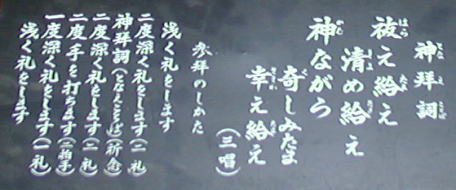 神拝詞
祓え給え
清め給え
神ながら
奇しみたま
幸え給え
(三唱)
参拝のしかた
浅く礼をします
二度深く礼をします(二礼)
神拝詞(となえことば)(祈念)
二度深く礼をします(二礼)
二度手を打ちます(二拍手)
一度深く礼をします(一礼)
浅く礼をします